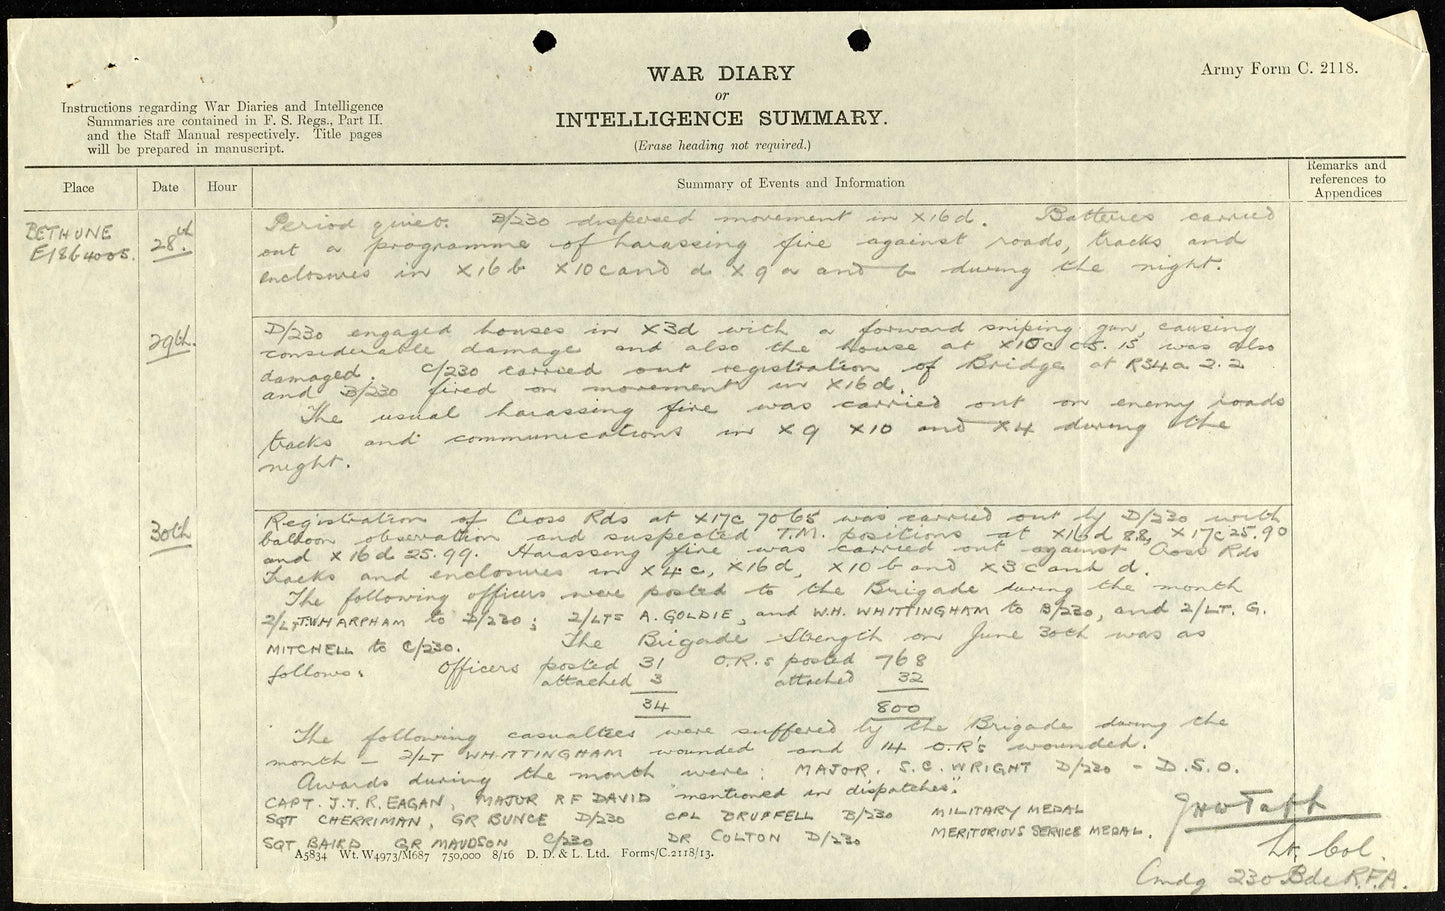 WAR DIARY
or
INTELLIGENCE SUMMARY.
(Erase heading not required.)
Army Form C. 2118.
Instructions regarding War Diaries and Intelligence
Summaries are contained in F. S. Regs., Part II.
and the Staff Manual respectively. Title pages
will be prepared in manuscript.
Place Date Hour Summary of Events and Information Remarks and references to Appendices
BETHUNE
E18b4005.
28th
Period quiet. B/230 dispersed movement in X16d. Batteries carried
out a programme of harassing fire against roads, tracks and
enclosures in X16b X10c and d X9a and b during the night.
29th.
D/230 engaged houses in X3d with a forward sniping gun, causing
considerable damage and also the house at X10c 05.15 was also
damaged. C/230 carried out registration of Bridge at R34a 2.2
and B/230 fired on movement in X16d.
The usual harassing fire was carried out on enemy roads
tracks and communications in X9 X10 and X4 during the
night.
30th
Registration of Cross Rds at X17c 7065 was carried out by D/230 with
balloon observation and suspected T.M. positions at X16d 88, X17c 25.90
and X16d 25.99. Harassing fire was carried out against Cross Rds
Tracks and enclosures in X4c, X16d, X10b and X3c and d.
The following officers were posted to the Brigade during the month
2/LT. T.WHARPHAM to D/230; 2/LTs A. GOLDIE, and W.H. WHITTINGHAM to B/230, and 2/LT. G.
MITCHELL to C/230. The Brigade Strength on June 30th was as
follows: Officers posted 31 O.R.s posted 768
attached 3 attached 32
34 800
The following casualties were suffered by the Brigade during the
month – 2/LT WHITTINGHAM wounded and 14 O.R's wounded.
Awards during the month were: MAJOR. S.C. WRIGHT D/230 – D.S.O.
CAPT. J.T.R. EAGAN, MAJOR R F DAVID "mentioned in dispatches."
SGT CHERRIMAN, GR BUNCE D/230 CPL DRUFFELL B/230 MILITARY MEDAL
SGT BAIRD GR MAUDSON C/230 DR COLTON D/230 MERITORIOUS SERVICE MEDAL.
Lt. Col.
Cmdg 230 Bde R.F.A.
A5834 Wt. W4973/M687 750,000 8/16 D. D. & L. Ltd. Forms/C.2118/13.